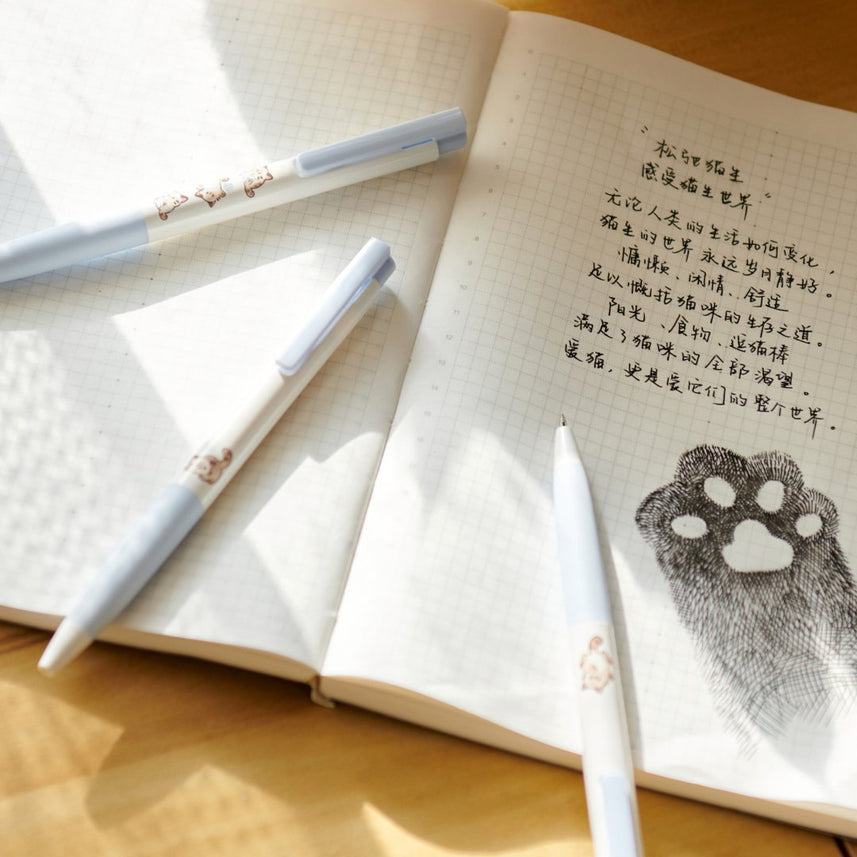 "松弛猫生
感受猫生世界"
无论人类的生活如何变化，
猫生的世界永远岁月静好。
慵懒、闲情、舒适
足以概括猫咪的生存之道。
阳光、食物、逗猫棒
满足了猫咪的全部渴望。
爱猫，更是爱它们的整个世界。